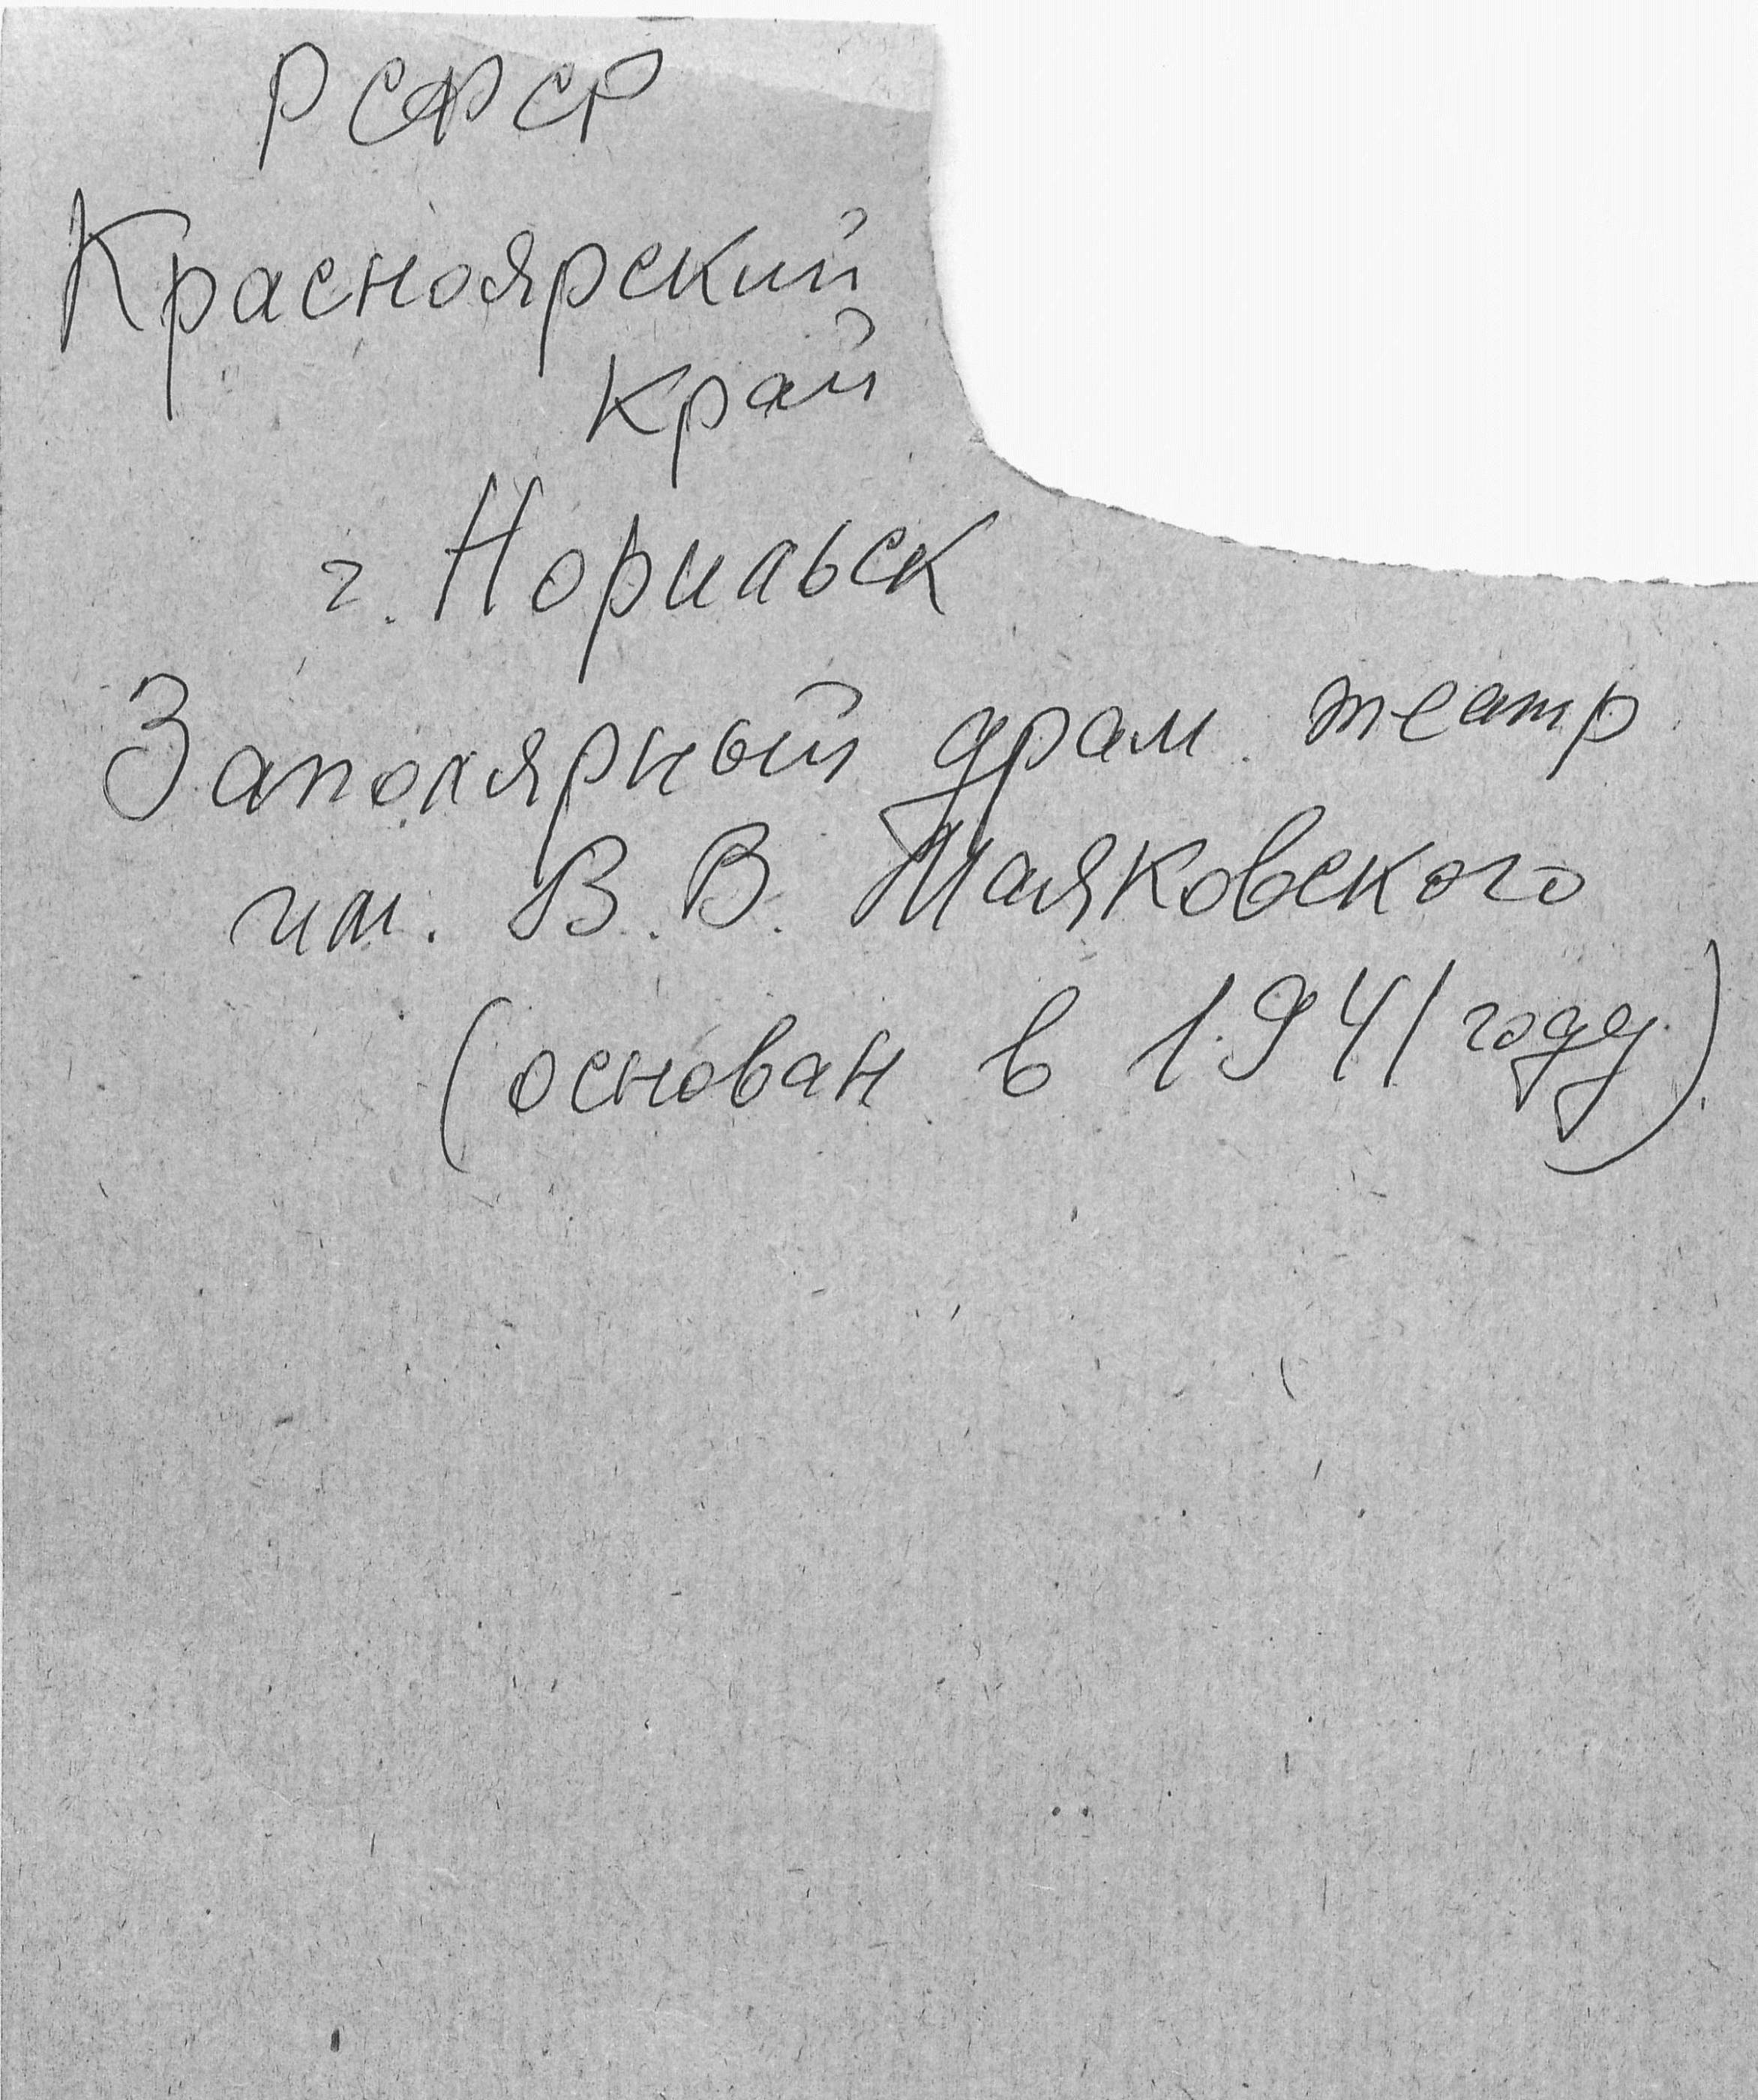 РСФСР
Красноярский
край
г. Норильск
Заполярный драм. театр
им. В. В. Маяковского
(основан в 1941 году)